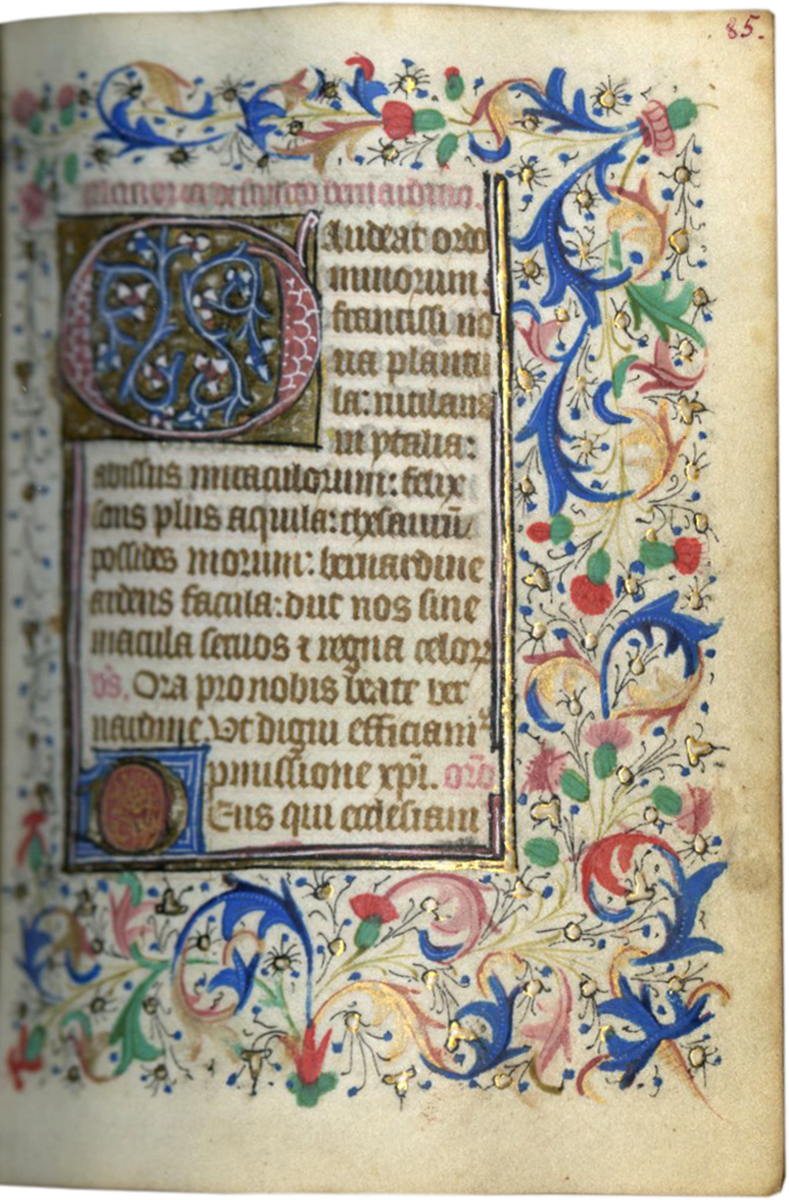 85.
Memoria de sancto bernardino.
Gaudeat ordo
minorum:
francisci no
ua plantu
la: rutilans
in ytalia:
abissus miraculorum: felix
fons plus aquila: thesaurū
possides morum: bernardine
ardens facula: duc nos sine
macula seruos ⁊ regna celorꝝ
v̄s. Ora pro nobis beate ber
nardine. Vt digni efficiam᷒
pmissione xp̄i. orō
Deus qui ecclesiam